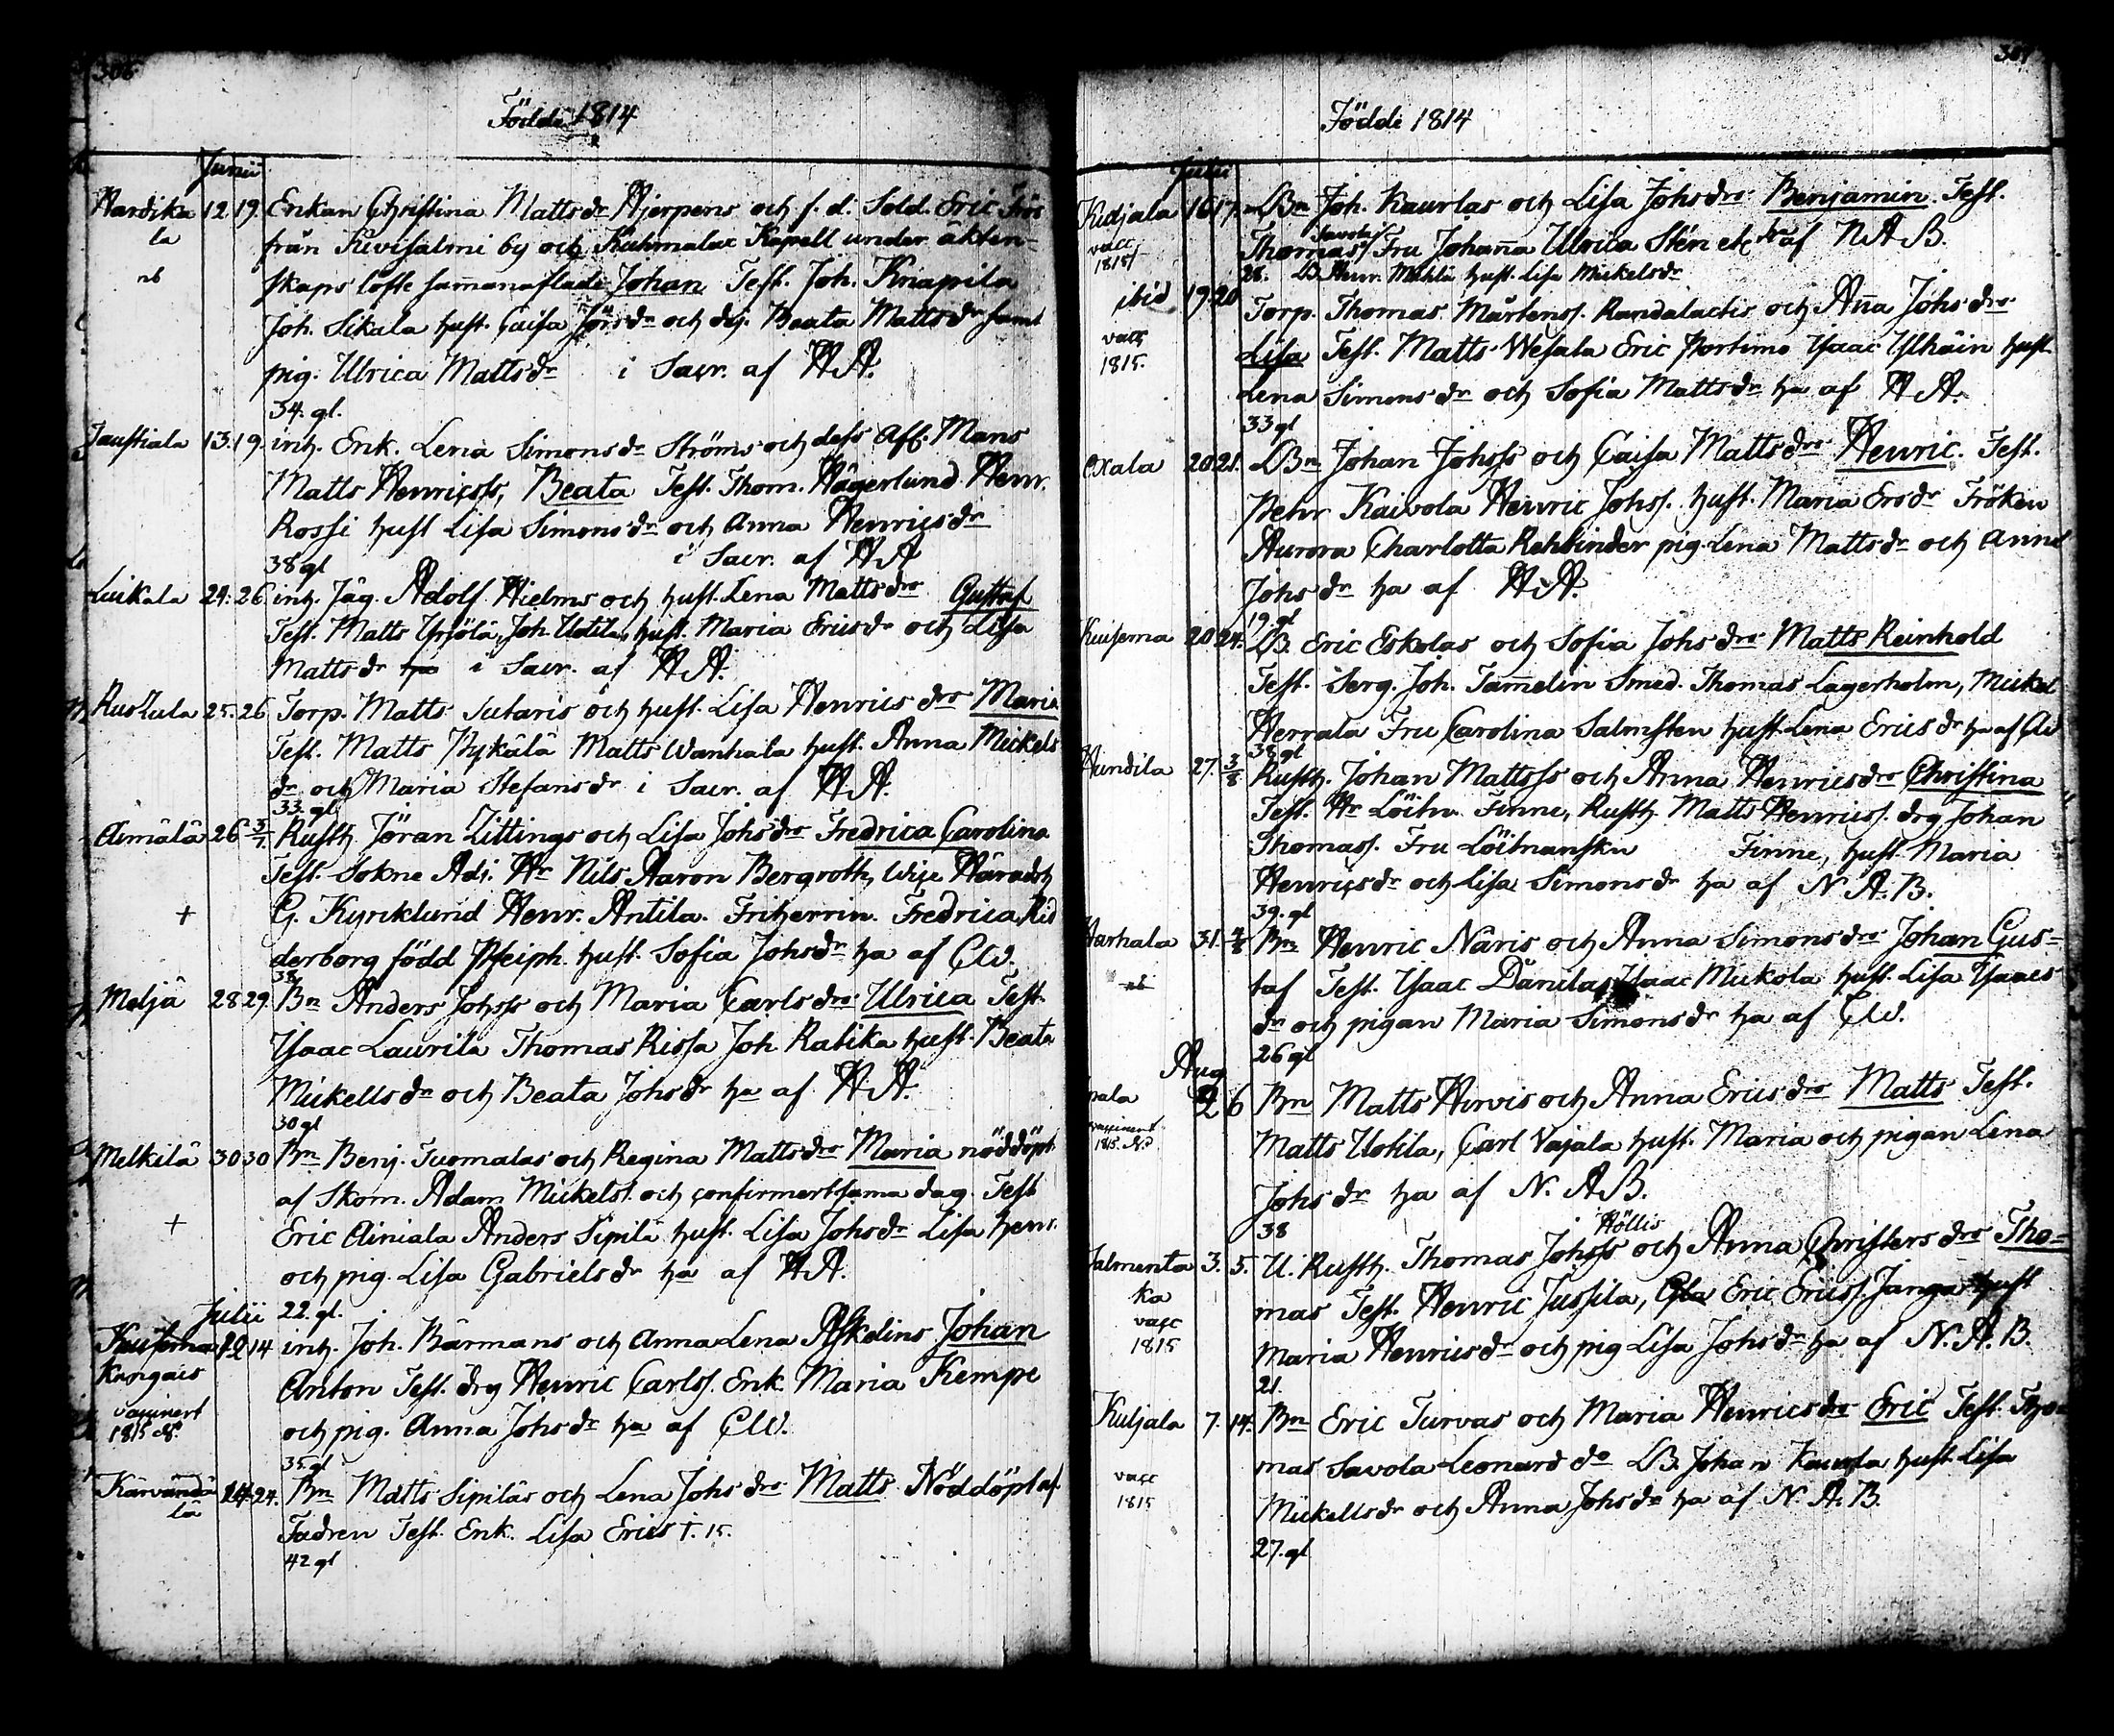 306
Födde 1814
Junii
Hardika 12 19. Enkan Christina Mattsdr Hjerpens och f. d. Sold. Eric Frös
la från Kivisalmi by och Kuhmalax Kapell under äkten-
nb skaps löfte sam̄anaflade Johan Test. Joh. Knapila
Joh. Sikala hust. Caisa Jörsdr och dej. Beata Mattsdr samt
pig. Ulrica Mattsdr i Sacr. af HA.
34. gl.
Jaustiala 13. 19. inh. Enk. Lena Simonsdr Ströms och dess Aff. Mans
Matts Henricss, Beata Test. Thom. Hägerlund Henr.
Rossi hust Lisa Simonsdr och Anna Henricsdr
38 gl i Sacr. af HA
Luikala 24. 26 inh. Jäg. Adolf Hielms och hust. Lena Mattsdrs Gustaf
Test. Matts Yrjölä, Joh. Uotila, hust. Maria Ericsdr och Lisa
Mattsdr i Sacr. af HA.
Rustula 25. 26 Torp. Matts Sutaris och hust. Lisa Henricsdrs Maria
Test. Matts Pykälä Matts Wanhala hust. Anna Mickels
dr och Maria Stefansdr i Sacr. af HA.
33. gl
Äimälä 26 3/7. Rusth. Jöran Zittings och Lisa Johsdrs Fredrica Carolina
Test. Sokne Adj. Hr Nils Aaron Bergroth, Wice Häradsh
+ G. Kyrcklund Henr. Antila. Friherrin. Fredrica Rid
derborg född Pfeiph. hust. Sofia Johsdr ha af CW.
38
Meljä 28 29. Bn Anders Johss och Maria Carlsdrs Ulrica Test.
Isaac Laurila Thomas Rissa Joh. Rabika hust. Beata
Mickellsdr och Beata Johsdr ha af HA.
30 gl
Melkilä 30 30 Bn Benj. Tuomalas och Regina Mattsdrs Maria nöddöpt
af Skom. Adam Mickelss. och confirmert sama dag. Test
+ Eric Äiniala Anders Sipilä hust. Lisa Johsdr Lisa Henr.
och pig. Lisa Gabrielsdr ha af HA.
Julii 22. gl.
Kuisema 12 14 inh. Joh. Bärmans och Anna Lena Askolins Johan
Kangais Anton Test. drg Henric Carlss. Enk. Maria Kempe
vaccinert och pig. Anna Johsdr ha af CW.
1815 N.
35. gl
Kärvändä 14. 24. Bn Matts Sipiläs och Lena Johsdrs Matts Nöddöpt af
lä Fadren Test. Enk. Lisa Erics †. 15.
42 gl
307
Födde 1814
Julii
Kutjala 16 17. LBn Joh. Kaurlas och Lisa Johsdrs Benjamin. Test.
vacc Thomas Savola/ Fru Johan̄a Ulrica Stén etc ha af NAB.
1815/
28. LB. Henr. Mickla hust. Lisa Mickelsdr
ibid 19. 20 Torp. Thomas Mårtenss. Randalactis och An̄a Johsdrs
vacc Lisa Test. Matts Wesala Eric Portimo Isaac Ylhäin hust.
1815. Lena Simonsdr och Sofia Mattsdr ha af HA.
33 gl
Oxala 20 21. LBn Johan Johss och Caisa Mattsdrs Henric. Test.
Pehr Kaivola Henric Johss. hust. Maria Ersdr Fröken
Aurora Charlotta Rehbinder pig. Lena Mattsdr och Anna
Johsdr ha af HA.
19. gl
Kuisema 20 24. LB. Eric Eskolas och Sofia Johsdrs Matts Reinhold
Test. Serg. Joh. Tam̄elin Smed. Thomas Lagerholm, Mickel
Herrala Fru Carolina Salmsten hust. Lena Ericsdr ha af CW
38 gl
Hundila 27. 3/8 Rusth. Johan Mattss och Anna Henricsdrs Christina
Test. Hr Löitn. Finne, Rusth. Matts Henricss. drg Johan
Thomass. Fru Löitnanskn Finne, hust. Maria
Henricsdr och Lisa Simonsdr ha af N. A. B.
39. gl
Harhala 31. 4/8 Bn Henric Näris och Anna Simonsdrs Johan Gus=
nb taf Test. Isaac Dänilas Isaac Mickola hust. Lisa Isaacs
dr och pigan Maria Simonsdr ha af CW.
26 gl
Aug
pala 2 6 Bn Matts Hirvis och Anna Ericsdrs Matts Test.
vaccinert Matts Uotila, Carl Vajala hust. Maria och pigan Lena
1815. N.
Johsdr ha af N. AB.
38 Höllis
Talmenta 3. 5. U. Rusth. Thomas Johss och Anna Christersdrs Tho=
ka mas Test. Henric Jussila, Eric Ericss. Janga hust
vacc Maria Henricsdr och pig Lisa Johsdr ha af N. A. B.
1815
21.
Kutjala 7. 14. Bn Eric Turvas och Maria Henricsdrs Eric Test. Tho
mas Savola Leonard do LB. Johan Kaurla hust. Lisa
vacc Mickellsdr och Anna Johsdr ha af N. A. B.
1815
27. gl